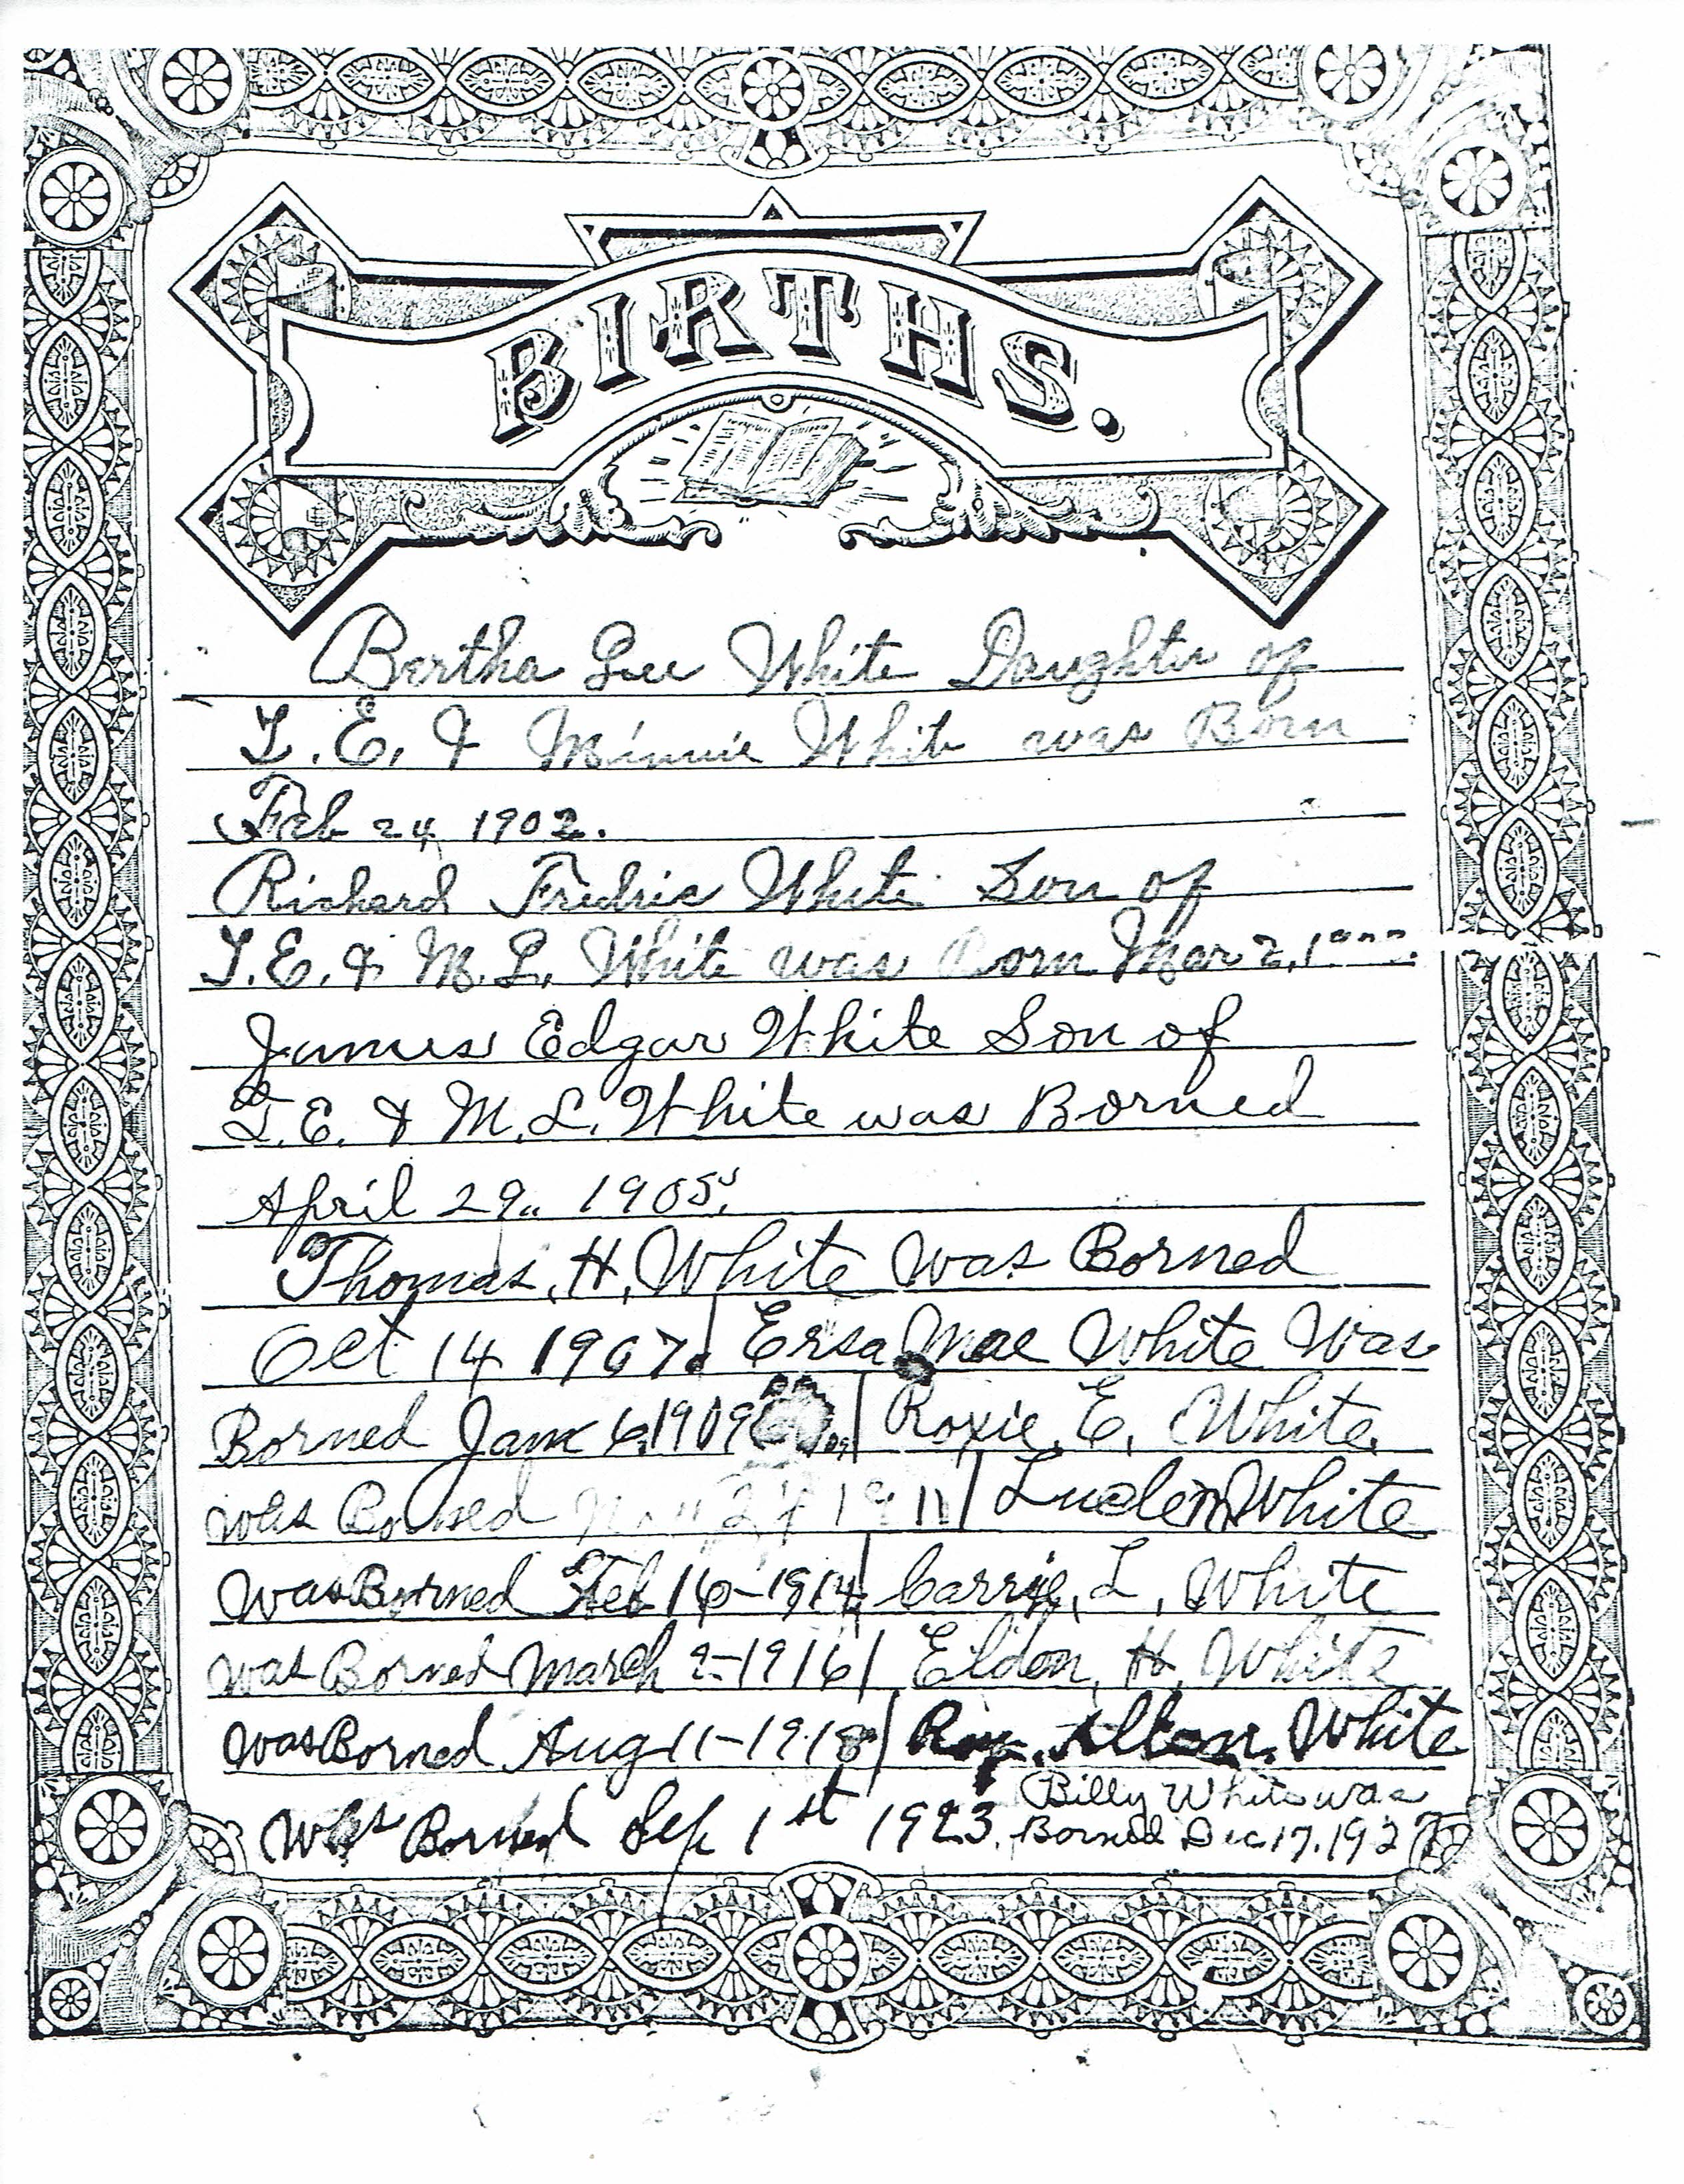 BIRTHS.
Bertha Lee White Daughter of
T. E. & Minnie White was Born
Feb 24 1902.
Richard Fredric White Son of
T. E. & M. L. White was Born Mar 2, 1
James Edgar White Son of
T. E. & M. L. White was Borned
April 29, 1905.
Thomas, H, White was Borned
Oct 14 1907. | Ersa Mae White Was
Borned Jan 6, 1909 | Roxie, E, White,
was Borned 1911 | White
was Borned Feb 16-1914 | Carrie, L, White
was Borned March 2-1916 | Eldon, H, White
was Borned Aug 11-1918 | Roy, Alton, White
Was Borned Sep 1st 1923. Billy White was
Borned Dec 17, 1927